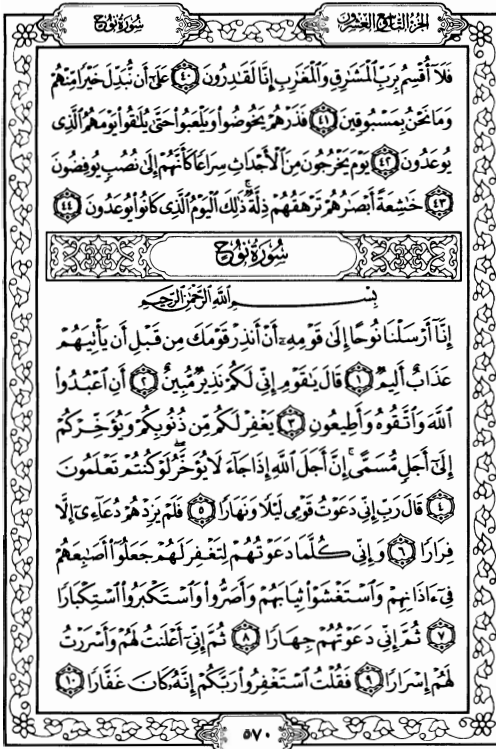 سُورَةُ نُوحٍ
الجزء التاسع والعشرون
فَلَآ أُقْسِمُ بِرَبِّ ٱلْمَشَٰرِقِ وَٱلْمَغَٰرِبِ إِنَّا لَقَٰدِرُونَ ٤٠ عَلَىٰٓ أَن نُّبَدِّلَ خَيْرًا مِّنْهُمْ
وَمَا نَحْنُ بِمَسْبُوقِينَ ٤١ فَذَرْهُمْ يَخُوضُوا۟ وَيَلْعَبُوا۟ حَتَّىٰ يُلَٰقُوا۟ يَوْمَهُمُ ٱلَّذِى
يُوعَدُونَ ٤٢ يَوْمَ يَخْرُجُونَ مِنَ ٱلْأَجْدَاثِ سِرَاعًا كَأَنَّهُمْ إِلَىٰ نُصُبٍ يُوفِضُونَ
٤٣ خَٰشِعَةً أَبْصَٰرُهُمْ تَرْهَقُهُمْ ذِلَّةٌ ۚ ذَٰلِكَ ٱلْيَوْمُ ٱلَّذِى كَانُوا۟ يُوعَدُونَ ٤٤
سُورَةُ نُوحٍ
بِسْمِ ٱللَّهِ ٱلرَّحْمَٰنِ ٱلرَّحِيمِ
إِنَّآ أَرْسَلْنَا نُوحًا إِلَىٰ قَوْمِهِۦٓ أَنْ أَنذِرْ قَوْمَكَ مِن قَبْلِ أَن يَأْتِيَهُمْ
عَذَابٌ أَلِيمٌ ١ قَالَ يَٰقَوْمِ إِنِّى لَكُمْ نَذِيرٌ مُّبِينٌ ٢ أَنِ ٱعْبُدُوا۟
ٱللَّهَ وَٱتَّقُوهُ وَأَطِيعُونِ ٣ يَغْفِرْ لَكُم مِّن ذُنُوبِكُمْ وَيُؤَخِّرْكُمْ
إِلَىٰٓ أَجَلٍ مُّسَمًّى ۚ إِنَّ أَجَلَ ٱللَّهِ إِذَا جَآءَ لَا يُؤَخَّرُ ۖ لَوْ كُنتُمْ تَعْلَمُونَ
٤ قَالَ رَبِّ إِنِّى دَعَوْتُ قَوْمِى لَيْلًا وَنَهَارًا ٥ فَلَمْ يَزِدْهُمْ دُعَآءِىٓ إِلَّا
فِرَارًا ٦ وَإِنِّى كُلَّمَا دَعَوْتُهُمْ لِتَغْفِرَ لَهُمْ جَعَلُوٓا۟ أَصَٰبِعَهُمْ
فِىٓ ءَاذَانِهِمْ وَٱسْتَغْشَوْا۟ ثِيَابَهُمْ وَأَصَرُّوا۟ وَٱسْتَكْبَرُوا۟ ٱسْتِكْبَارًا
٧ ثُمَّ إِنِّى دَعَوْتُهُمْ جِهَارًا ٨ ثُمَّ إِنِّىٓ أَعْلَنتُ لَهُمْ وَأَسْرَرْتُ
لَهُمْ إِسْرَارًا ٩ فَقُلْتُ ٱسْتَغْفِرُوا۟ رَبَّكُمْ إِنَّهُۥ كَانَ غَفَّارًا ١٠
٥٧٠